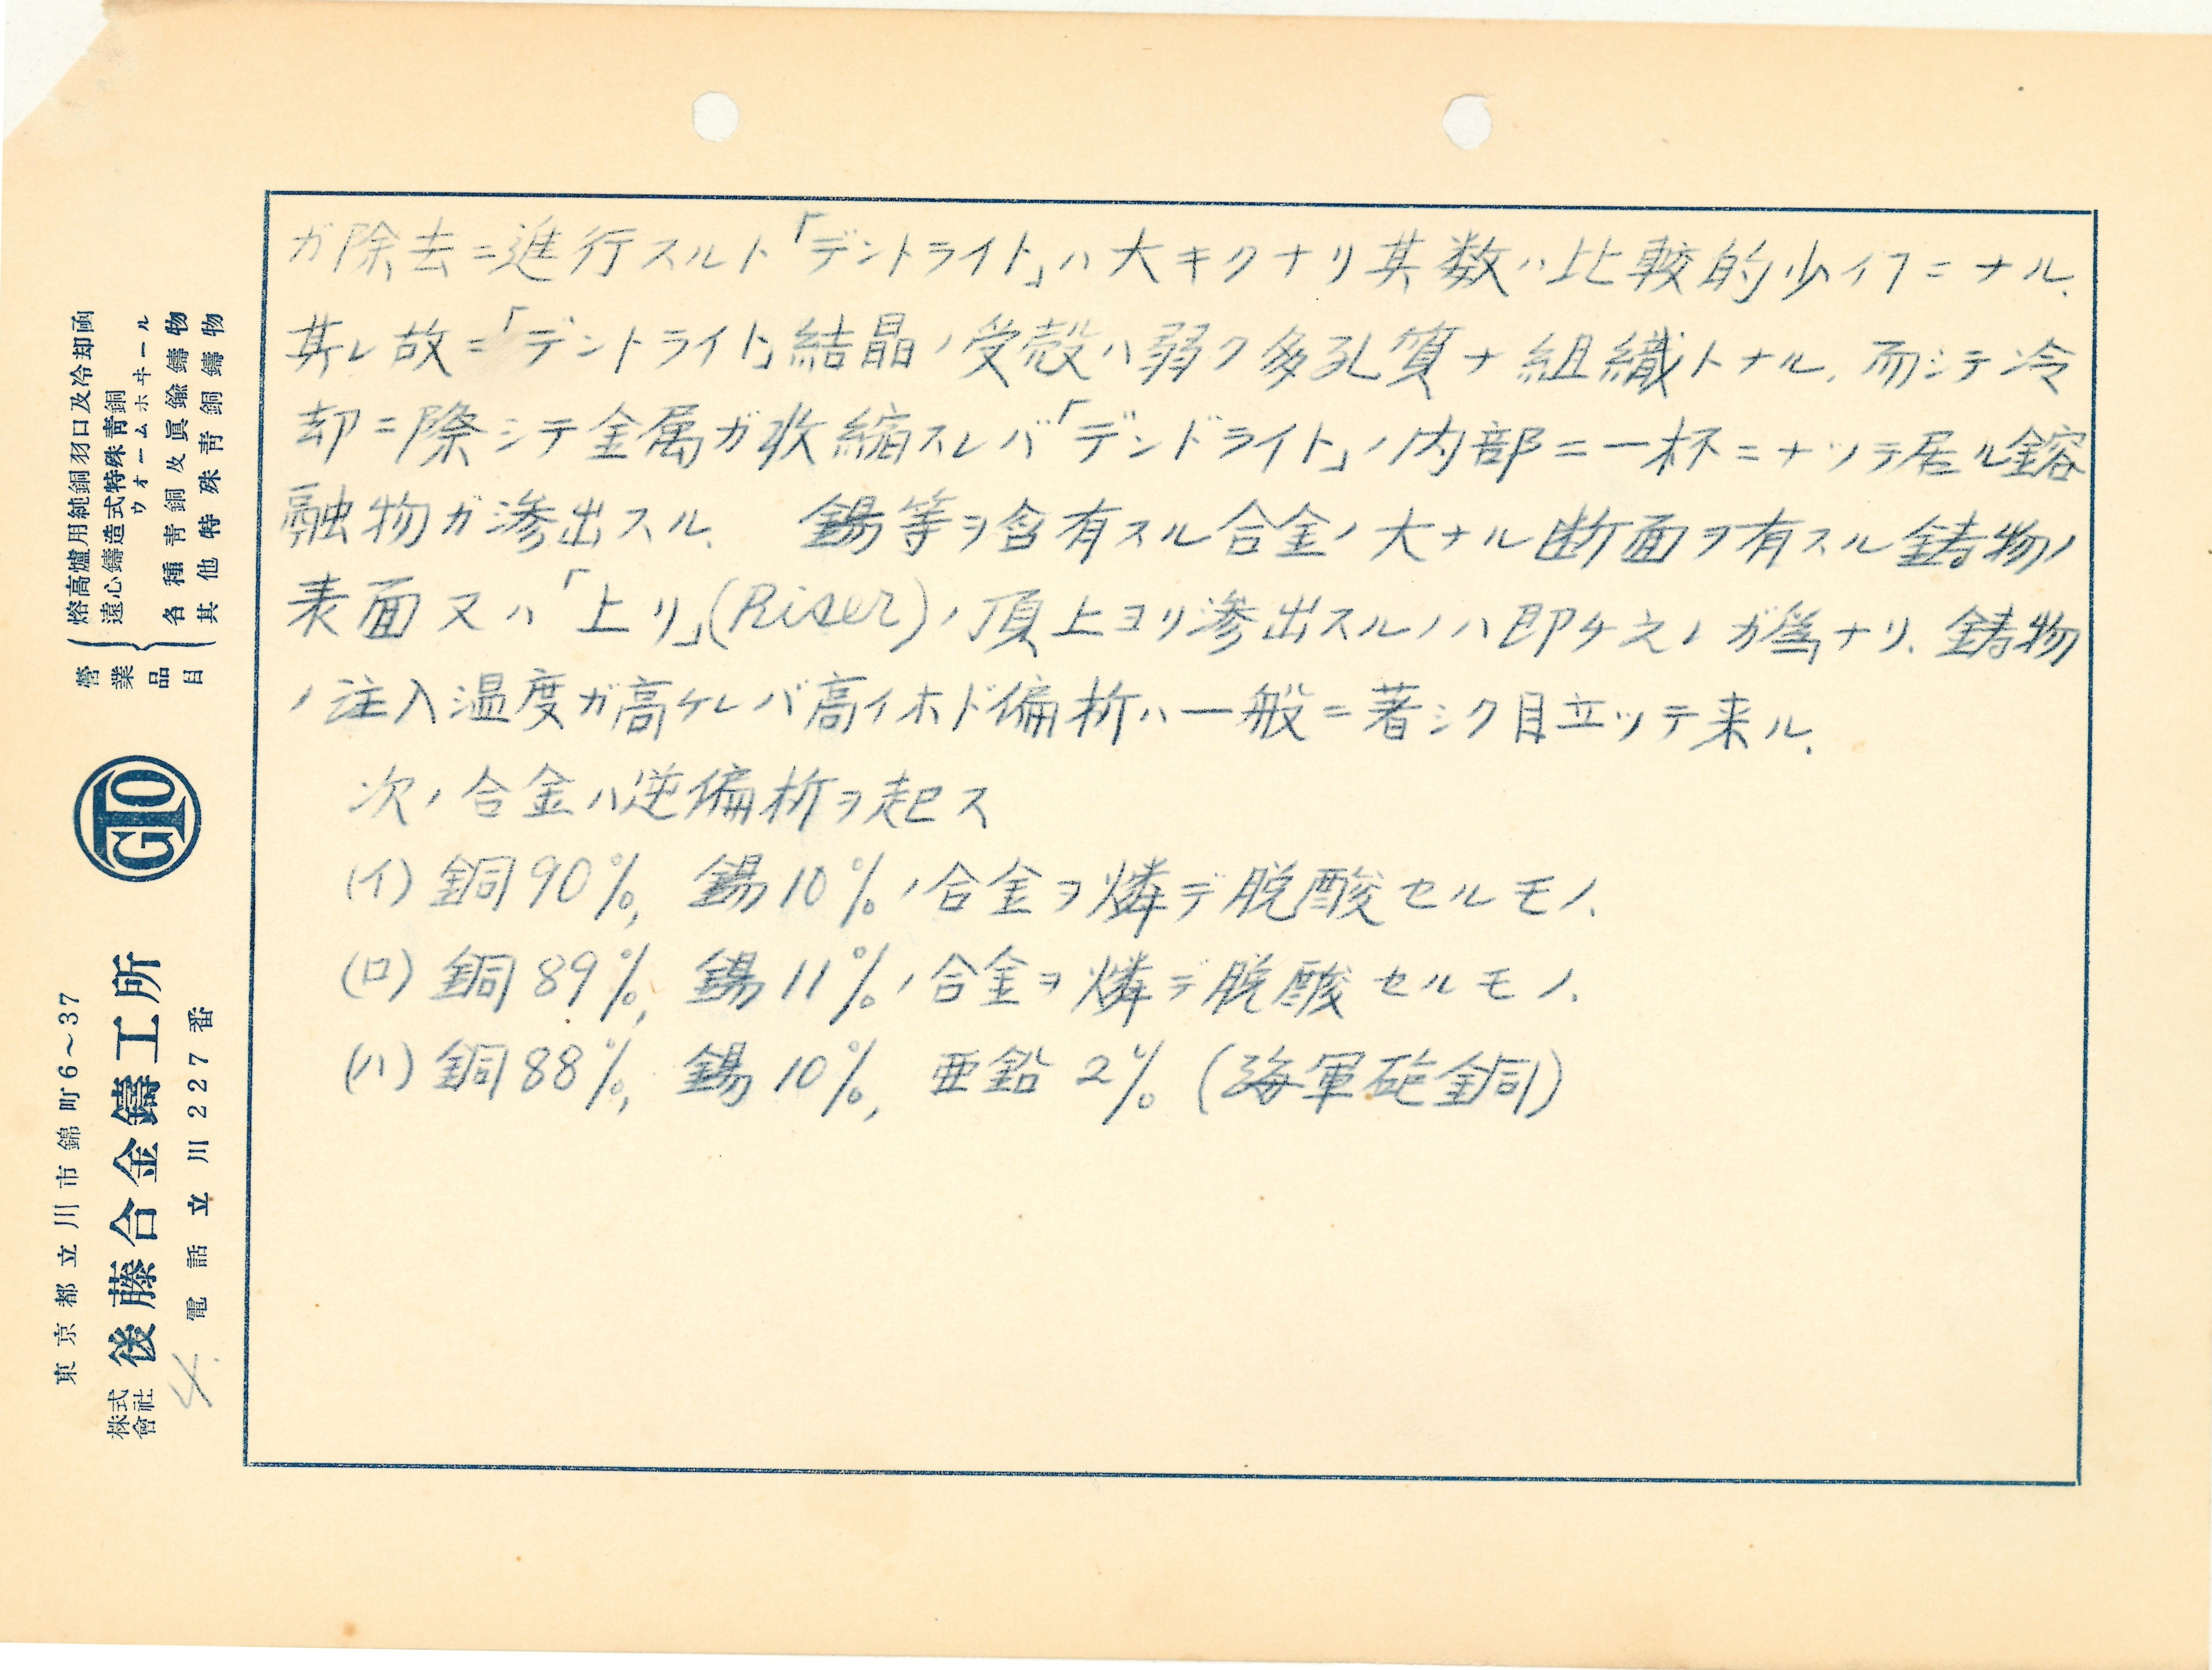 ガ除去ニ進行スルト「デントライト」ハ大キクナリ其数ハ比較的少イフニナル.
其レ故ニ「デントライト」結晶ノ受殻ハ弱ク多孔質ナ組織トナル. 而シテ冷
却ニ際シテ金属ガ收縮スレバ「デンドライト」ノ内部ニ一杯ニナツテ居ル鎔
融物ガ滲出スル. 錫等ヲ含有スル合金ノ大ナル断面ヲ有スル鋳物ノ
表面又ハ「上リ」(Riser)ノ頂上ヨリ滲出スルノハ即ケ之レガ為ナリ. 鋳物
ノ注入温度ガ高ケレバ高イホド偏析ハ一般ニ著シク目立ッテ来ル.
次ノ合金ハ逆偏析ヲ起ス
(イ) 銅90%, 錫10%ノ合金ヲ燐デ脱酸セルモノ.
(ロ) 銅89%, 錫11%ノ合金ヲ燐デ脱酸セルモノ.
(ハ) 銅88%, 錫10%, 亜鉛2% (海軍砲金銅)
東京都立川市錦町6〜37
株式會社 後藤合金鑄工所
電話立川227番
4.
GTO
營業品目
熔高爐用純銅羽口及冷却函
遠心鑄造式特殊青銅ウオームホヰール
各種青銅及眞鍮鑄物
其他特殊青銅鑄物